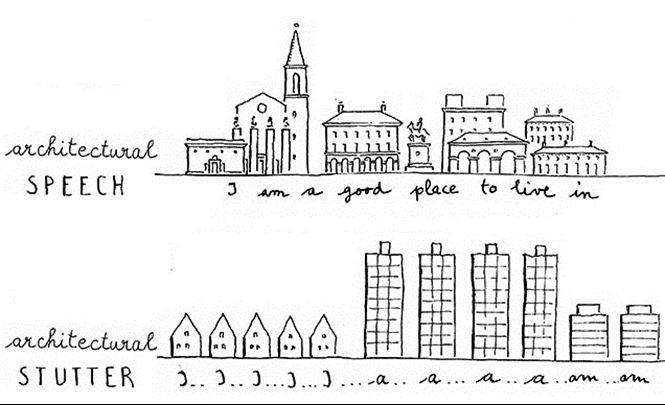 architectural
SPEECH
I am a good place to live in
architectural
STUTTER
I.. I.. I... I... I .... a.. a ... a .. a .. am .. am